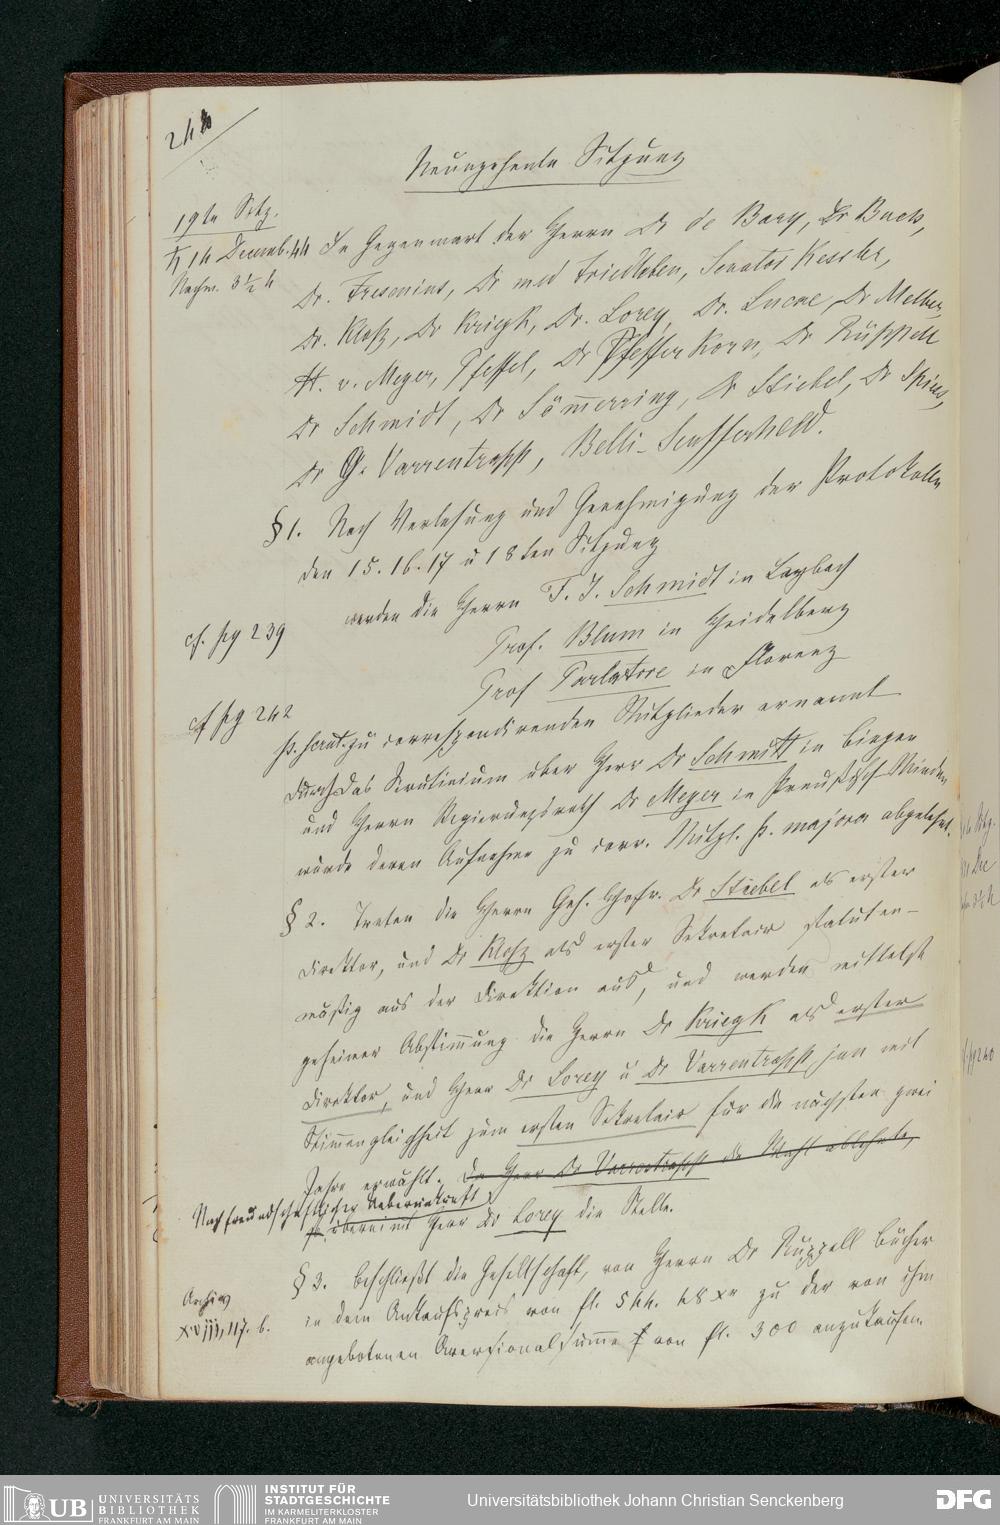 248
Neunzehnte Sitzung
19te Sitz.
14 Decemb. 44
Nachm. 3 ½ h
In Gegenwart der Herrn Dr de Bary, Dr Buck,
Dr. Fresenius, Dr med Friedleben, Senator Kessler,
Dr. Kloß, Dr Kriegk, Dr. Lorey, Dr. Lucae, Dr Melber,
H. v. Meyer, Pfeffel, Dr Pfefferkorn, Dr Rüppell
Dr Schmidt, Dr Sömmerring, Dr Stiebel, Dr Spiess,
Dr G. Varrentrapp, Belli-Seufferheld.
§ 1. Nach Verlesung und Genehmigung der Protokolle
den 15. 16. 17 u 18ten Sitzung
werden die Herrn F. J. Schmidt in Laybach
cf. pg 239
Prof. Blum in Heidelberg
Prof Parlatore in Florenz
cf pg 242
p. scrut. zu correspondirenden Mitglieder ernannt
durch das Scrutinium über Herr Dr Schmitt in Bingen
und Herrn Regierungsrath Dr Meyer in Preußisch Minden
wurde deren Aufnahme zu corr. Mitgl. p. majora abgelehnt.
§ 2. Treten die Herrn Geh. Hofr. Dr Stiebel als erster
Direktor, und Dr Kloß als erster Sekretair statuten-
mäßig aus der Direktion aus, und werden mittelst
geheimer Abstimmung die Herrn Dr Kriegk als erster
Direktor, und Herr Dr Lorey u Dr Varrentrapp jun mit
Stimmengleichheit zum ersten Sekretair für die nächsten zwei
Jahre erwählt. Da Herr Dr Varrentrapp die Wahl ablehnte,
Nach freundschaftlicher Uebereinkunft
so übernimt Herr Dr Lorey die Stelle.
§ 3. Beschließt die Gesellschaft, von Herrn Dr Rüppell Bücher
Archiv
XVIII, 117. b.
in dem Ankaufspreis von fl. 544. 48 xr zu der von ihm
angebotenen Aversionalsumme von fl. 300 anzukaufen.
UB UNIVERSITÄTS
BIBLIOTHEK
FRANKFURT AM MAIN
INSTITUT FÜR
STADTGESCHICHTE
IM KARMELITERKLOSTER
FRANKFURT AM MAIN
Universitätsbibliothek Johann Christian Senckenberg
DFG